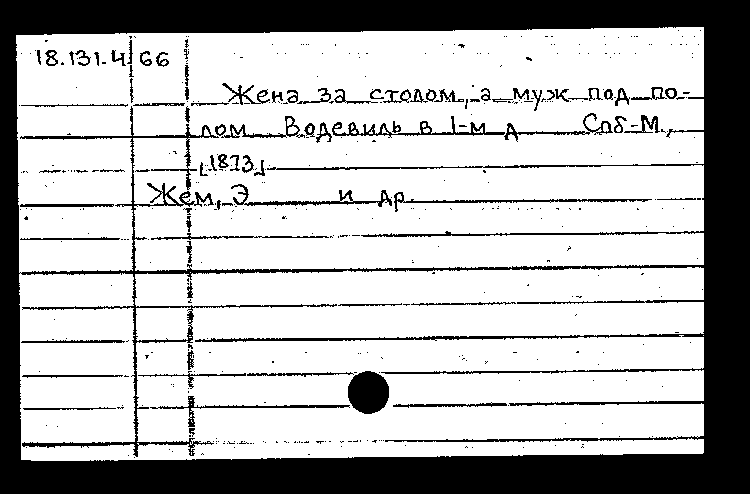 18.131.4.66
Жена за столом, а муж под по-
лом Водевиль в 1-м д Спб-М.,
[1873]
Жем, Э и др.